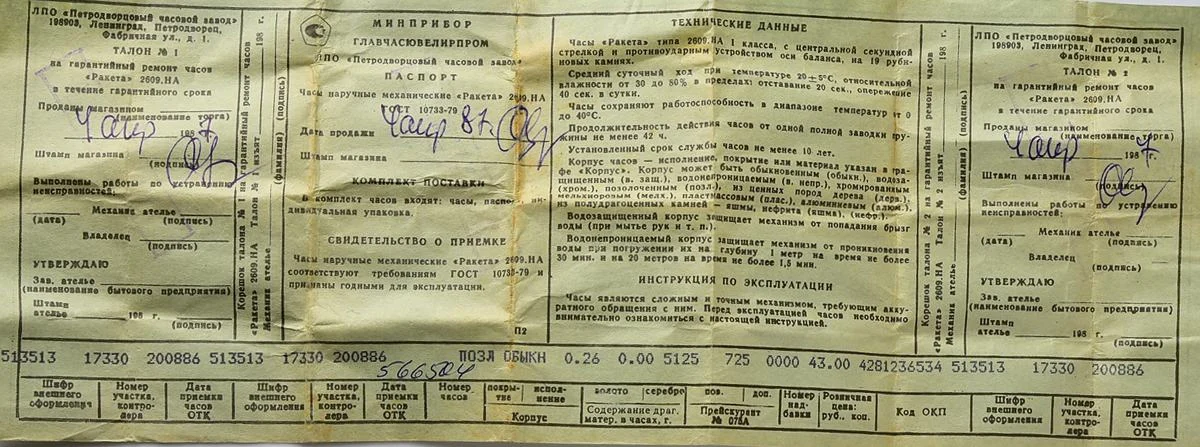 ЛПО «Петродворцовый часовой завод»
198903, Ленинград, Петродворец,
Фабричная ул., д. 1.
ТАЛОН № 1
на гарантийный ремонт часов
«Ракета» 2609.НА
в течение гарантийного срока
Проданы магазином
(наименование торга)
198 7 г.
Штамп магазина
(подпись)
Выполнены работы по устранению
неисправностей:
Механик ателье
(дата) (подпись)
Владелец
(подпись)
УТВЕРЖДАЮ
Зав. ателье
(наименование бытового предприятия)
Штамп
ателье 198 г.
(подпись)
Корешок талона № 1 на гарантийный ремонт часов
«Ракета» 2609.НА Талон № 1 изъят 198 г.
Механик ателье
(фамилия) (подпись)
МИНПРИБОР
ГЛАВЧАСЮВЕЛИРПРОМ
ЛПО «Петродворцовый часовой завод»
ПАСПОРТ
Часы наручные механические «Ракета» 2609.НА
ГОСТ 10733-79
Дата продажи 87
Штамп магазина
КОМПЛЕКТ ПОСТАВКИ
В комплект часов входят: часы, паспорт, ин-
дивидуальная упаковка.
СВИДЕТЕЛЬСТВО О ПРИЕМКЕ
Часы наручные механические «Ракета» 2609.НА
соответствуют требованиям ГОСТ 10733-79 и
признаны годными для эксплуатации.
П2
ТЕХНИЧЕСКИЕ ДАННЫЕ
Часы «Ракета» типа 2609.НА 1 класса, с центральной секундной
стрелкой и противоударным устройством оси баланса, на 19 руби-
новых камнях.
Средний суточный ход при температуре 20±5°С, относительной
влажности от 30 до 80% в пределах: отставание 20 сек., опережение
40 сек. в сутки.
Часы сохраняют работоспособность в диапазоне температур от 0
до 40°С.
Продолжительность действия часов от одной полной заводки пру-
жины не менее 42 ч.
Установленный срок службы часов не менее 10 лет.
Корпус часов — исполнение, покрытие или материал указан в гра-
фе «Корпус». Корпус может быть обыкновенный (обыкн.), водоза-
щищенным (в. защ.), водонепроницаемым (в. непр.), хромированным
(хром.), позолоченным (позл.), из ценных пород дерева (дерв.),
мельхиоровым (мелх.), пластмассовым (плас.), алюминиевым (алюм.),
из полудрагоценных камней — яшмы, нефрита (яшма), (нефр.).
Водозащищенный корпус защищает механизм от попадания брызг
воды (при мытье рук и т. п.).
Водонепроницаемый корпус защищает механизм от проникновения
воды при погружении их на глубину 1 метр на время не более
30 мин. и на 20 метров на время не более 1,5 мин.
ИНСТРУКЦИЯ ПО ЭКСПЛУАТАЦИИ
Часы являются сложным и точным механизмом, требующим акку-
ратного обращения с ним. Перед эксплуатацией часов необходимо
внимательно ознакомиться с настоящей инструкцией.
Корешок талона № 2 на гарантийный ремонт часов
«Ракета» 2609.НА Талон № 2 изъят 198 г.
Механик ателье
(фамилия) (подпись)
ЛПО «Петродворцовый часовой завод»
198903, Ленинград, Петродворец,
Фабричная ул., д. 1.
ТАЛОН № 2
на гарантийный ремонт часов
«Ракета» 2609.НА
в течение гарантийного срока
Проданы магазином
(наименование торга)
198 7 г.
Штамп магазина
(подпись)
Выполнены работы по устранению
неисправностей:
Механик ателье
(дата) (подпись)
Владелец
(подпись)
УТВЕРЖДАЮ
Зав. ателье
(наименование бытового предприятия)
Штамп
ателье 198 г.
(подпись)
513513 17330 200886 513513 17330 200886 ПОЗЛ ОБЫКН 0.26 0.00 5125 725 0000 43.00 4281236534 513513 17330 200886
566504
Шифр внешнего оформления
Номер участка, контро- лера
Дата приемки часов ОТК
Шифр внешнего оформления
Номер участка, контро- лера
Дата приемки часов ОТК
Номер часов
покры- тие
испол- нение
Корпус
золото серебро
Содержание драг. матер. в часах, г.
пов. доп.
Прейскурант № 075А
Номер над- бавки
Розничная цена: руб., коп.
Код ОКП
Шифр внешнего оформления
Номер участка, контро- лера
Дата приемки часов ОТК